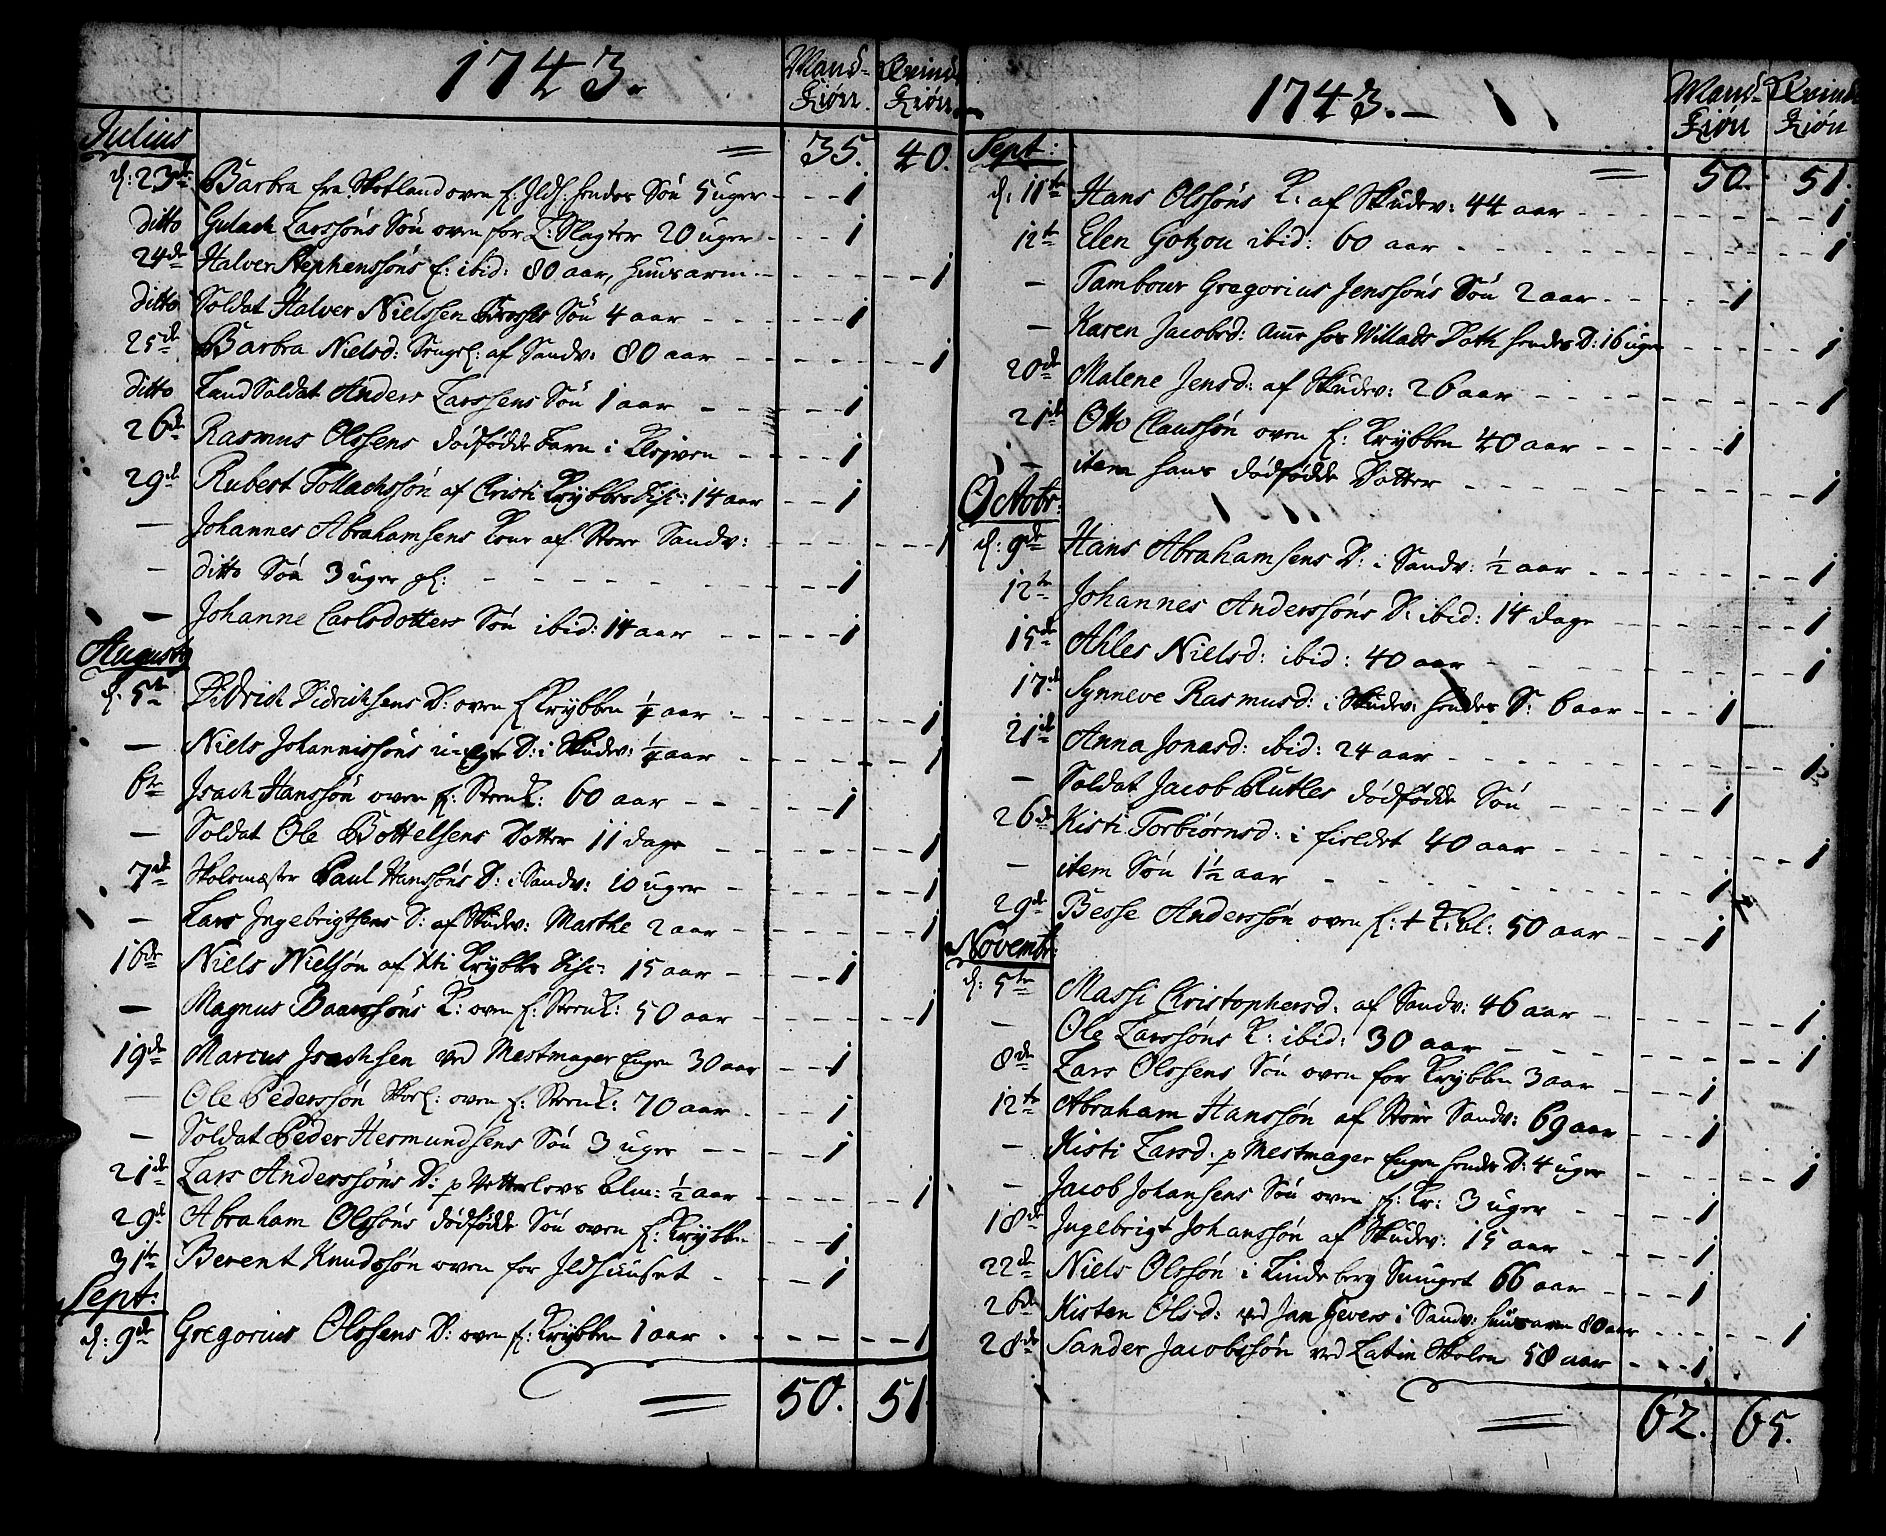 1743.
Mand-
Kiön.
Qvind
Kiön
Julius
= 35. 40.
d: 23de Barbra fra Skotland oven f. Ildh. hendes Sön 5 uger - - - 1
ditto Gulach Larssöns Sön oven for L: Slagter 20 uger - - - 1
24de Halver Stephenssöns K: ibid: 80 aar, huusarm - - - 1
ditto Soldat Halver Nielssen Sön 4 aar - - - 1
25de Barbra Nielsd: Sengel: af Sandv: 80 aar - - - 1
ditto Land Soldat Anders Larssens Sön 1 aar - - - 1
26de Rasmus Olssens dödfödde Barn i Klejven - - - 1
29de Rubert Tollachssön af Christi Krybbe Disc: 14 aar - - - 1
— Johannes Abrahamsens Kone af Store Sandv: - - - 1
— ditto Sön 3 uger gl: - - - 1
— Johanne Carlsdotters Sön ibid: 14 aar - - - 1
Augusty
d. 5te Didrich Didrichsens D: oven f Krybben ¼ aar - - - 1
— Niels Johannissöns u-egte D: i Skudev: ¼ aar - - - 1
6te Isach Hanssön oven f: SteenK: 60 aar - - - 1
— Soldat Ole Bottelsens Dotter 11 dage - - - 1
7de Skolemester Paul Hanssöns D: i Sandv: 10 uger - - - 1
— Lars Ingebrigtsens D: af Skudev: Marthe 2 aar - - - 1
16de Niels Nielsön af Xti Krybbe Disc: 15 aar - - - 1
— Magnus Baarssöns K: oven f: SteenK: 50 aar - - - 1
19de Marcus Isachsen ved Mestmager Engen 30 aar - - - 1
— Ole Pederssön Skorl: oven f: SteenK: 70 aar - - - 1
— Soldat Peder Hermundsens Sön 3 uger - - - 1
21de Lars Anderssöns D: p Vetterlevs Alm: ½ aar - - - 1
29de Abraham Olssöns dödfödde Sön oven f: Krybbn - - - 1
31te Berent Knudssön oven for Ildhuuset - - - 1
Sept:
d: 9de Gregorius Olssens D: oven f: Krybben 1 aar - - - 1
= 50. 51.
1743.
Mand-
Kiön
Qvind
Kiön
Sept:
= 50. 51.
d: 11te Hans Olssöns K: af Skudev: 44 aar - - - 1
12te Elen Gotzou ibid: 60 aar - - - 1
— Tambour Gregorius Jenssöns Sön 2 aar - - - 1
— Karen Jacobsd: Ame hos Willads Poth hendes D: 16 uger - - - 1
20de Malene Jensd: af Skudev: 26 aar - - - 1
21de Otto Claussön oven f: Krybben 40 aar - - - 1
— item hans dödfödde Dotter - - - 1
Octobr:
d: 9de Hans Abrahamsens D: i Sandv: ½ aar - - - 1
12te Johannes Anderssöns D: ibid: 14 dage - - - 1
15de Ahles Nielsd: ibid: 40 aar - - - 1
17de Synneve Rasmusd: i Skudev: hendes S: 6 aar - - - 1
21de Anna Jonasd: ibid: 24 aar - - - 1
— Soldat Jacob Rutles dödfödde Sön - - - 1
26de Kisti Torbiörnsd: i fieldet 40 aar - - - 1
— item Sön 1½ aar - - - 1
29de Besse Anderssön oven f: + K: bl: 50 aar - - - 1
Novembr:
d: 5te Massi Christophersd: af Sandv: 46 aar - - - 1
— Ole Larssöns K: ibid: 30 aar - - - 1
8de Lars Olssens Sön oven for Krybbn 3 aar - - - 1
12te Abraham Hanssön af Store Sandv: 69 aar - - - 1
— Kisti Larsd. p Mestmager Engen hendes D: 4 uger - - - 1
— Jacob Johansens Sön oven f: Kr: 3 uger - - - 1
18de Ingebrigt Johanssön af Skudev: 15 aar - - - 1
22de Niels Olssön i Lindeberg Smuget 66 aar - - - 1
26de Kisten Olsd: ved Jan Gevers i Sandv: huusarm 80 aar - - - 1
28de Sander Jacobssön ved Latin Skolen 58 aar - - - 1
= 62. 65.